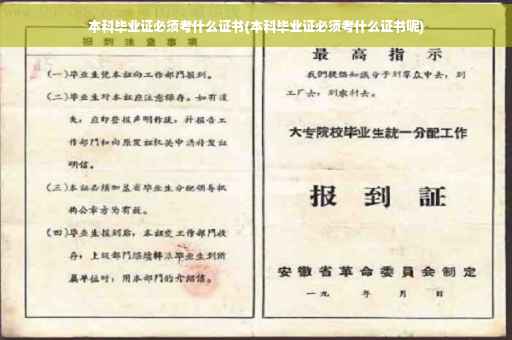 本科毕业证必须考什么证书(本科毕业证必须考什么证书呢)
报到注意事项
(一)毕业生凭本证向工作部门报到。
(二)毕业生对本证应注意保存。如有遗
失，应即登报声明作废，并报告工
作部门和向原发证机关申请补发证
明信。
(三)本证必须加盖省毕业生分配领导机
构公章方为有效。
(四)毕业生报到后，本证交工作部门收
存；上级部门继续转派毕业生到所
属单位时，用本部门的介绍信。
最高指示
我们提倡知识分子到群众中去，到
工厂去，到农村去。
大专院校毕业生統一分配工作
报到証
安徽省革命委員会制定
一九 年 月 日